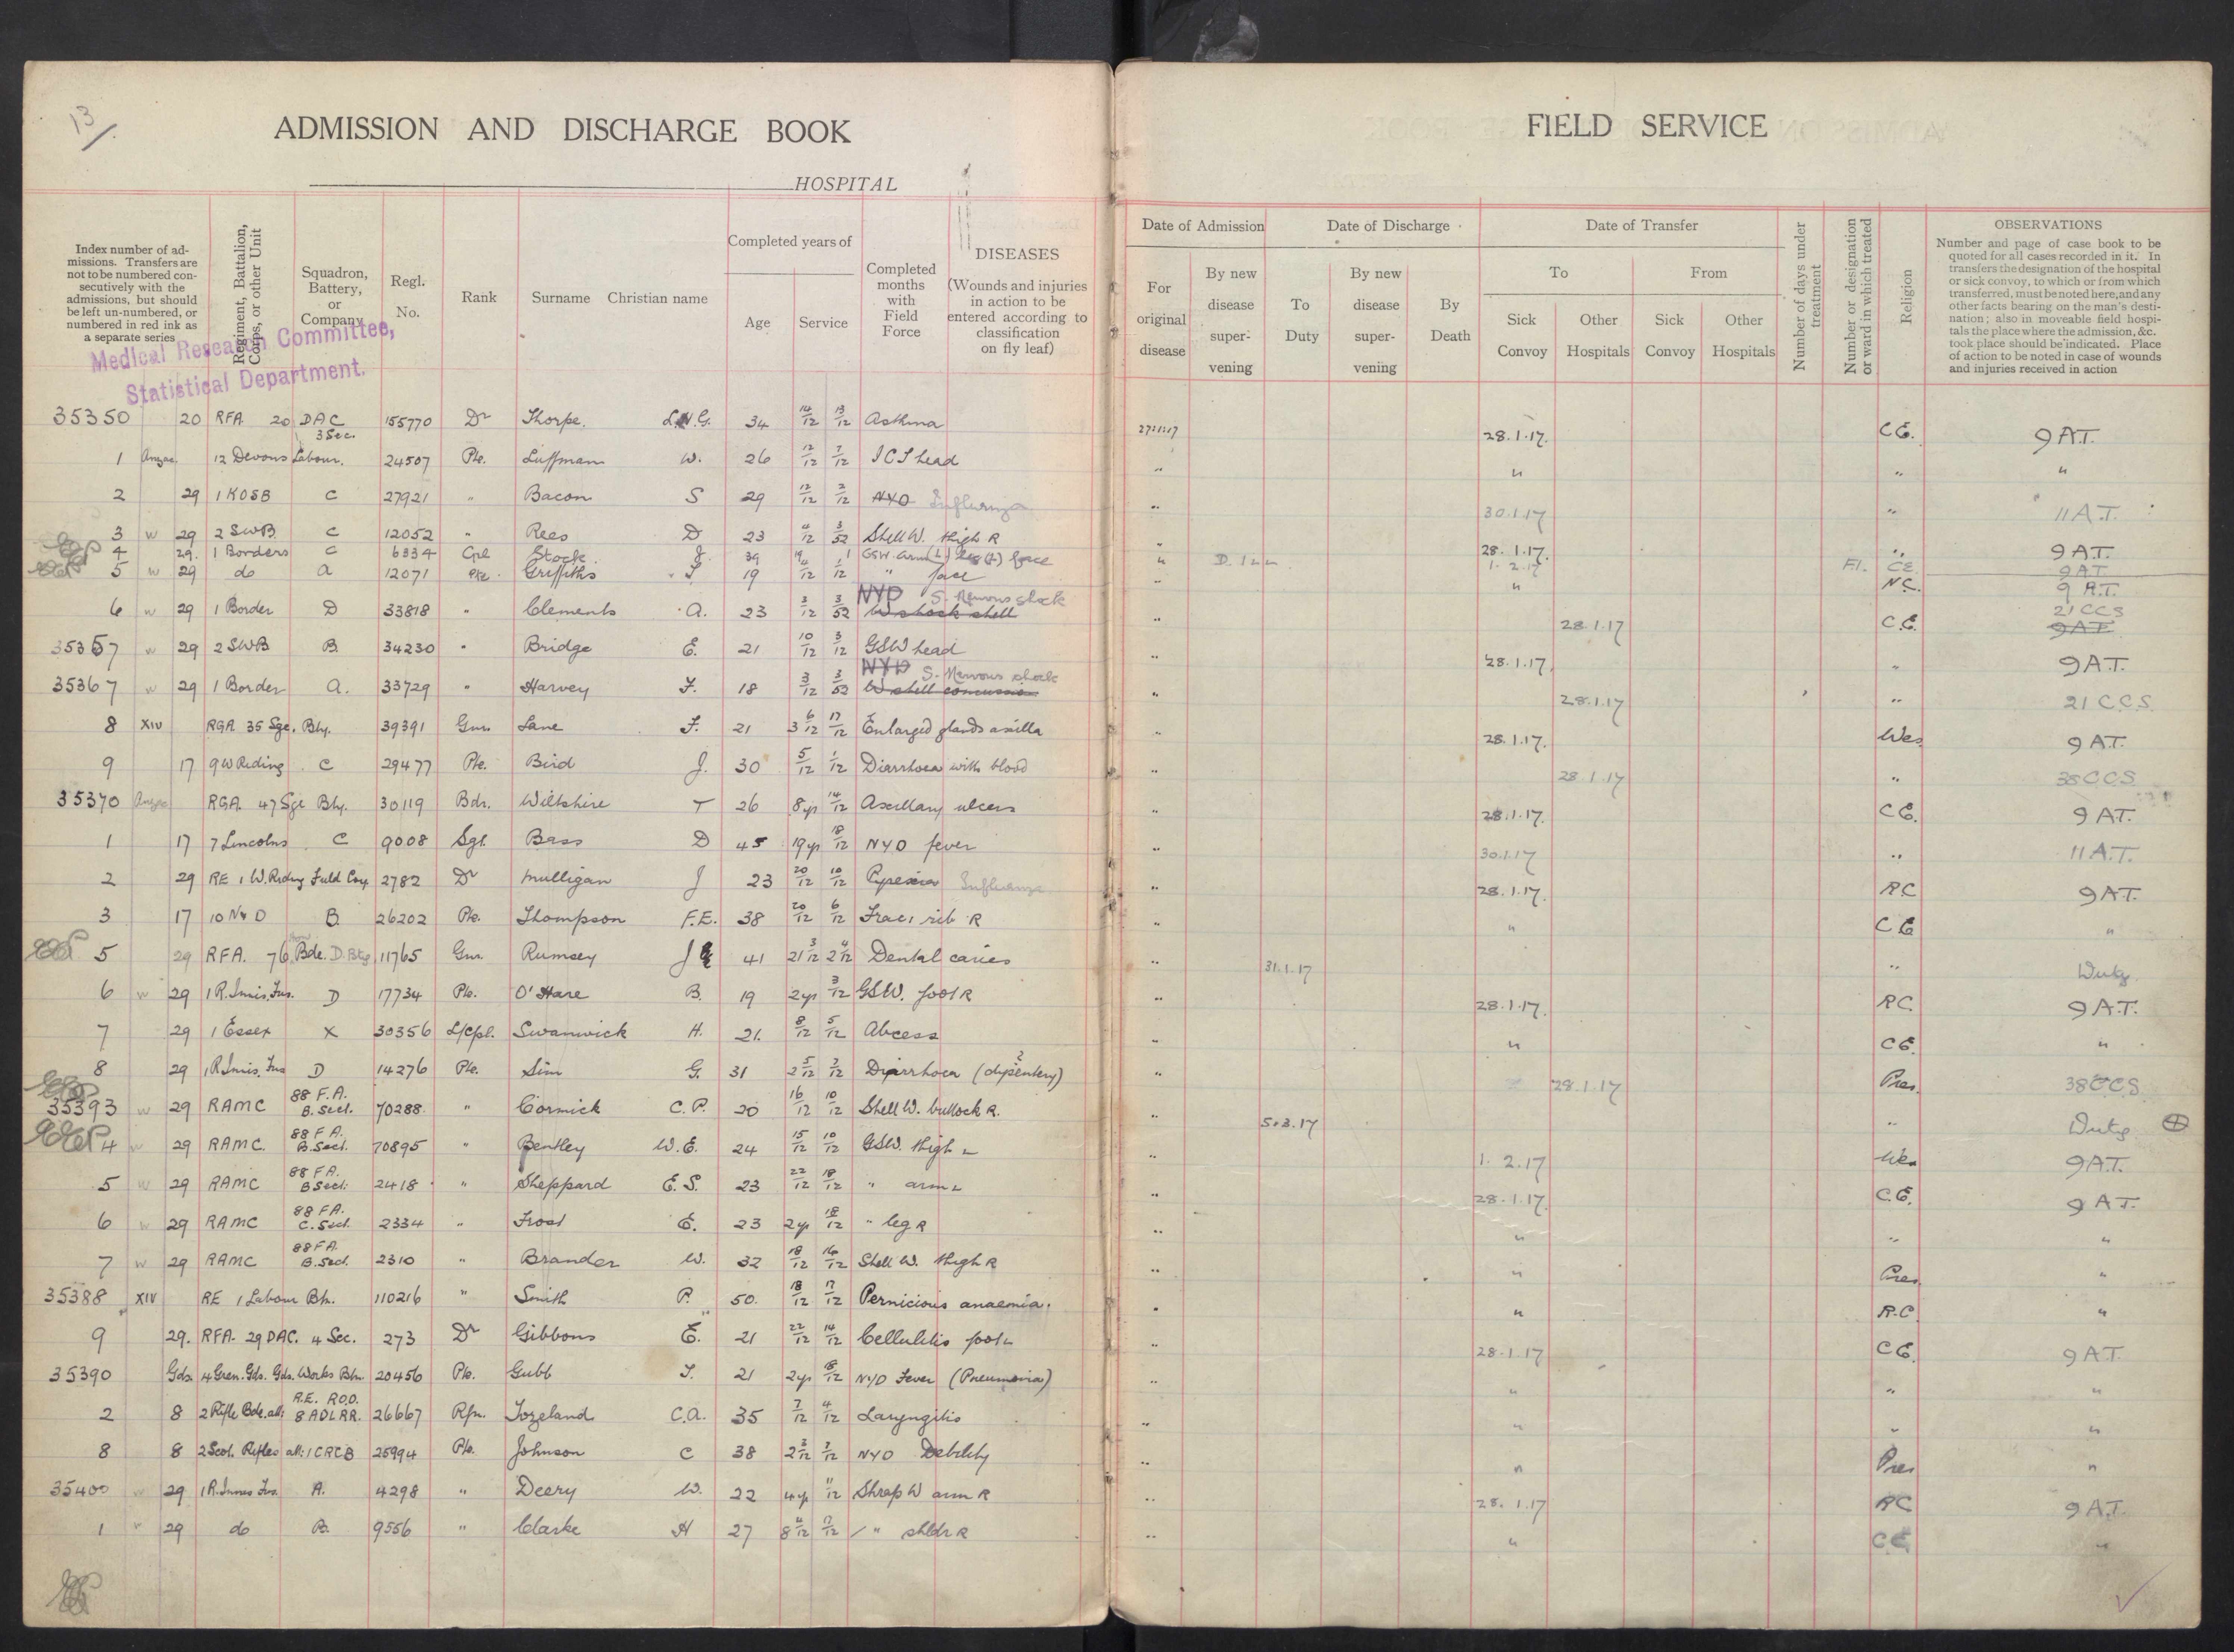 13/.
ADMISSION AND DISCHARGE BOOK
HOSPITAL
Index number of ad-
missions. Transfers are
not to be numbered con-
secutively with the
admissions, but should
be left un-numbered, or
numbered in red ink as
a separate series
Regiment, Battalion,
Corps, or other Unit
Squadron,
Battery,
or
Company
Regl.
No.
Rank
Surname Christian name
Completed years of
Age Service
Completed
months
with
Field
Force
DISEASES
(Wounds and injuries
in action to be
entered according to
classification
on fly leaf)
Medical Research Committee,
Statistical Department.
35350 20 RFA 20 DAC 3 Sec. 155770 Dr Thorpe. L.N.G. 34 14/12 13/12 Asthma
1 Anzac 12 Devons Labour. 24507 Pte. Luffman W. 26 12/12 7/12 ICT head
2 29 1 KOSB C 27921 " Bacon S 29 12/12 2/12 NYD Influenza
3 w 29 2 SWB C 12052 " Rees D 23 /12 3/52 Shell W. thigh R
4 29. 1 Borders C 6334 Cpl Stock J. 39 19 1 GSW. arm (L) leg (L) face
5 w 29 do A 12071 Pte. Griffiths T. 19 /12 /12 " face
6 w 29 1 Border D 33818 " Clements A. 23 3/12 3/52 NYD S. Nervous shock W shock shell
35357 w 29 2 SWB B. 34230 " Bridge E. 21 10/12 3/12 GSW head
35367 w 29 1 Border A. 33729 " Harvey F. 18 3/12 3/52 NYD S. Nervous shock W shell concussion
8 XIV RGA 35 Sge. Bty. 39391 Gnr. Lane F. 21 3 6/12 17/12 Enlarged glands axilla
9 17 9 W Riding C 29477 Pte. Bird J. 30 5/12 1/12 Diarrhoea with blood
35370 Anzac RGA. 47 Sge Bty. 30119 Bdr. Wiltshire T 26 8 yr 14/12 Axillary ulcers
1 17 7 Lincolns C 9008 Sgt. Bass D 45 19 yr 18/12 NYD fever
2 29 RE 1 W. Riding Field Coy 2782 Dr Mulligan J 23 20/12 10/12 Pyrexia Influenza
3 17 10 N & D B. 26202 Pte. Thompson F.E. 38 20/12 6/12 Frac: rib R
5 29 RFA. 76 Bde. D. Bty 11765 Gnr. Rumsey J 41 21 3/12 2 /12 Dental caries
6 w 29 1 R. Innis. Fus. D 17734 Pte. O'Hare B. 19 2 yr 3/12 GSW. foot R
7 29 1 Essex X 30356 L/Cpl. Swanwick H. 21. 8/12 5/12 Abcess
8 29 1 R. Innis. Fus D 14276 Pte. Sim G. 31 2 5/12 2/12 Diarrhoea (dysentery) ?
35393 w 29 RAMC 88 F.A. B. Sect. 70288 " Cormick C.P. 20 16/12 10/12 Shell W. buttock R.
4 w 29 RAMC. 88 F A. B. Sect. 70895 " Bentley W.E. 24 15/12 10/12 GSW. thigh L
5 w 29 RAMC 88 FA. B Sect. 2418 " Sheppard E.S. 23 22/12 18/12 " arm L
6 w 29 RAMC 88 FA. C. Sect. 2334 " Frost E. 23 2 yr 18/12 " leg R
7 w 29 RAMC 88 FA. B. Sect. 2310 " Brander W. 32 18/12 16/12 Shell W. thigh R
35388 XIV RE 1 Labour Bn. 110216 " Smith P. 50. 18/12 17/12 Pernicious anaemia.
9 29. RFA. 29 DAC. 4 Sec. 273 Dr Gibbons E. 21 22/12 14/12 Cellulitis foot L
35390 Gds. 4 Gren. Gds. Gds. Works Bn. 20456 Pte. Gubb T. 21 2 yr 18/12 NYD Fever (Pneumonia)
2 8 2 Rifle Bde. att: R.E. R.O.D. 8 ADLRR. 26667 Rfn. Tozeland C.A. 35 7/12 4/12 Laryngitis
8 8 2 Scot. Rifles att: 1 CRCB 25994 Pte. Johnson C 38 2 3/12 /12 NYD Debility
35400 w 29 1 R. Innis Fus. A. 4298 " Deery W. 22 4 yr 11/12 Shrap W arm R
1 " 29 do B. 9556 " Clarke H 27 8 /12 17/12 " shldr R
FIELD SERVICE
Date of Admission
For
original
disease
By new
disease
super-
vening
Date of Discharge
To
Duty
By new
disease
super-
vening
By
Death
Date of Transfer
To
From
Sick
Convoy
Other
Hospitals
Sick
Convoy
Other
Hospitals
Number of days under
treatment
Number or designation
or ward in which treated
Religion
OBSERVATIONS
Number and page of case book to be
quoted for all cases recorded in it. In
transfers the designation of the hospital
or sick convoy, to which or from which
transferred, must be noted here, and any
other facts bearing on the man's desti-
nation; also in moveable field hospi-
tals the place where the admission, &c.
took place should be indicated. Place
of action to be noted in case of wounds
and injuries received in action
27.1.17 28.1.17. C.E. 9 A.T.
" " " "
" 30.1.17 " 11 A.T.
" 28.1.17. " 9 A.T.
" 1.2.17 F.1. C.E. 9 A.T
" " N.C. 9 A.T.
" 28.1.17 C.E. 21 CCS 9 A T
" 28.1.17. " 9 A.T.
" 28.1.17 " 21 C.C.S.
" 28.1.17. Wes. 9 A.T.
" 28.1.17 " 38 C.C.S
" 28.1.17. C.E. 9 A.T.
" 30.1.17 " 11 A.T.
" 28.1.17. R.C 9 A.T.
" " C E "
" 31.1.17 " Duty.
" 28.1.17. R.C. 9 A.T.
" " C E. "
" 28.1.17 Pres. 38 C.C.S.
" 5.3.17 " Duty.
" 1.2.17 Wes 9 A.T.
" 28.1.17. C.E. 9 A.T.
" " " "
" " Pres. "
" " R.C. "
" 28.1.17 C E. 9 A.T.
" " " "
" " " "
" " Pres "
" 28.1.17 R C 9 A.T.
" " C E. "